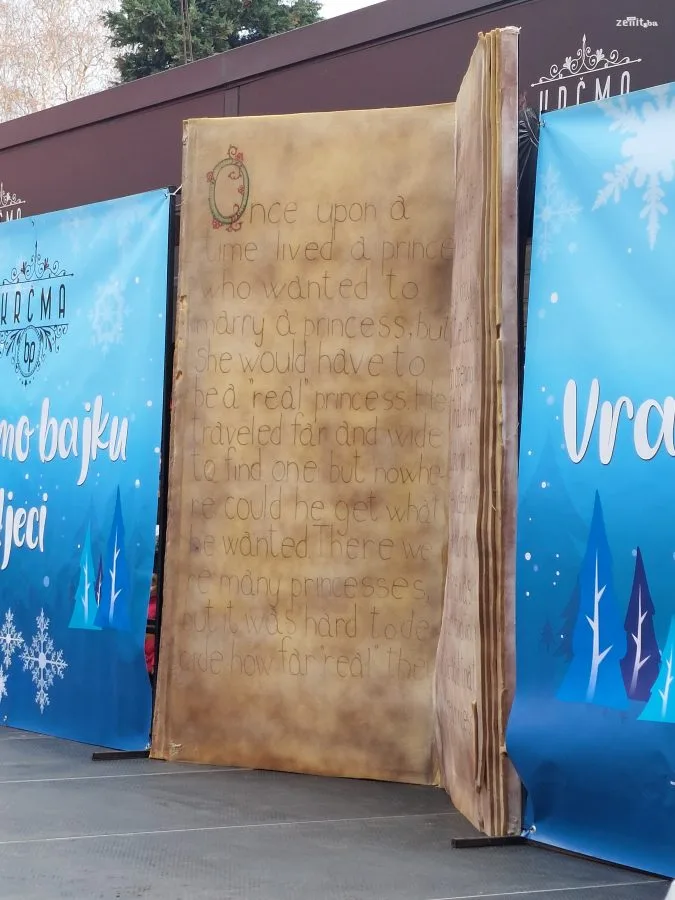 zenit.ba
KRČMA
KRČMA
bp
mo bajku
djeci
Once upon a
time lived a prince
who wanted to
marry a princess, but
She would have to
be a "real" princess. He
traveled far and wide
to find one but nowhe-
re could he get what
he wanted. There we
re many princesses,
but it was hard to de
cide how far "real" the
Vra